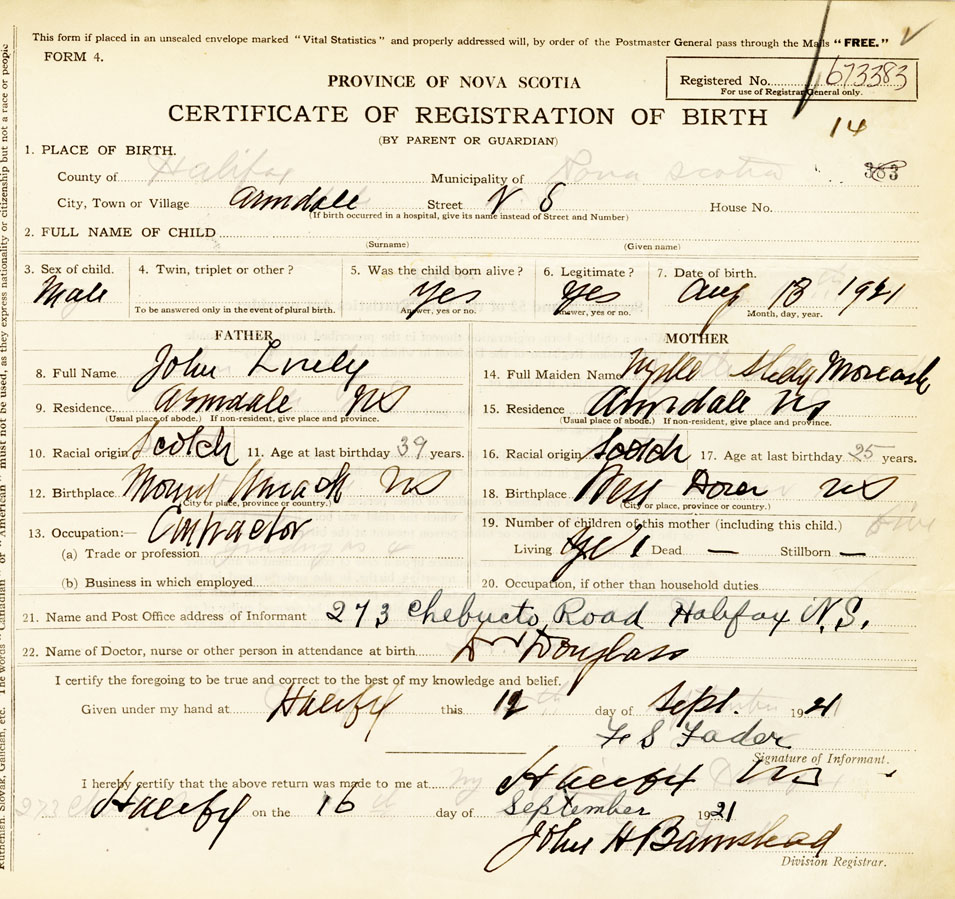 This form if placed in an unsealed envelope marked "Vital Statistics" and properly addressed will, by order of the Postmaster General pass through the Mails "FREE."
FORM 4.
PROVINCE OF NOVA SCOTIA
Registered No. 673383
For use of Registrar General only.
CERTIFICATE OF REGISTRATION OF BIRTH
14
(BY PARENT OR GUARDIAN)
1. PLACE OF BIRTH.
County of Halifax Municipality of Nova Scotia
City, Town or Village Armdale Street N S House No.
(If birth occurred in a hospital, give its name instead of Street and Number)
2. FULL NAME OF CHILD
(Surname) (Given name)
3. Sex of child. 4. Twin, triplet or other? 5. Was the child born alive? 6. Legitimate? 7. Date of birth.
Male Yes Yes Aug 13, 1921
To be answered only in the event of plural birth. Answer, yes or no. Answer, yes or no. Month, day, year.
FATHER MOTHER
8. Full Name John Lively 14. Full Maiden Name
9. Residence Armdale NS 15. Residence Armdale NS
(Usual place of abode.) If non-resident, give place and province. (Usual place of abode.) If non-resident, give place and province.
10. Racial origin Scotch 11. Age at last birthday 39 years. 16. Racial origin Scotch 17. Age at last birthday 25 years.
12. Birthplace Mount Uniack NS 18. Birthplace NS
(City or place, province or country.) (City or place, province or country.)
13. Occupation:— Contractor 19. Number of children of this mother (including this child.)
(a) Trade or profession Living Dead — Stillborn —
(b) Business in which employed 20. Occupation, if other than household duties
21. Name and Post Office address of Informant 273 Chebucto Road Halifax N.S.
22. Name of Doctor, nurse or other person in attendance at birth Dr Douglass
I certify the foregoing to be true and correct to the best of my knowledge and belief.
Given under my hand at Halifax this 12 day of Sept. 1921
F S Fader
Signature of Informant.
I hereby certify that the above return was made to me at Halifax NS
Halifax on the 16 day of September 1921
John H Barnstead
Division Registrar.
Ruthenian, Slovak, Galician, etc. The words "Canadian" or "American" must not be used, as they express nationality or citizenship but not a race or people